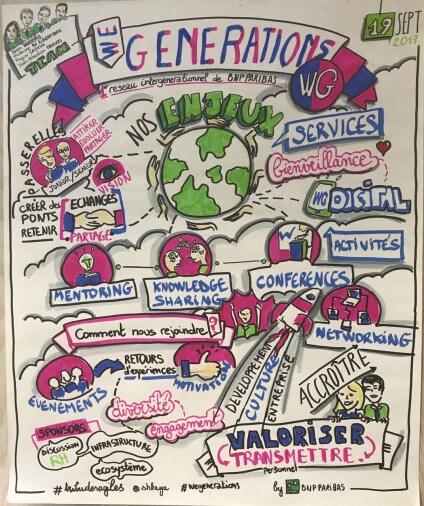 TEAM
19 SEPT
2017
WE GENERATIONS
1er reseau intergenerationnel de BNP PARIBAS
WG
NOS ENJEUX
PASSERELLES
ATTIRER
EVOLUER
PARTAGER
JUNIOR/SENIOR
VISION
CRÉER DES
PONTS
RETENIR
ECHANGES
PARTAGE
SERVICES
bienveillance
WO DIGITAL
ACTIVITÉS
MENTORING
KNOWLEDGE
SHARING
CONFÉRENCES
NETWORKING
Comment nous rejoindre ?
DEVELOPPEMENT
CULTURE
ENTREPRISE
ACCROÎTRE
EVÉNEMENTS
RETOURS
d'expériences
MOTIVATION
diversité
engagement
SPONSORS
DISCUSSION
RH
INFRASTRUCTURE
ecosystème
VALORISER
TRANSMETTRE
Personnel
#tribudesagiles @shkaya #wegenerations by BNP PARIBAS